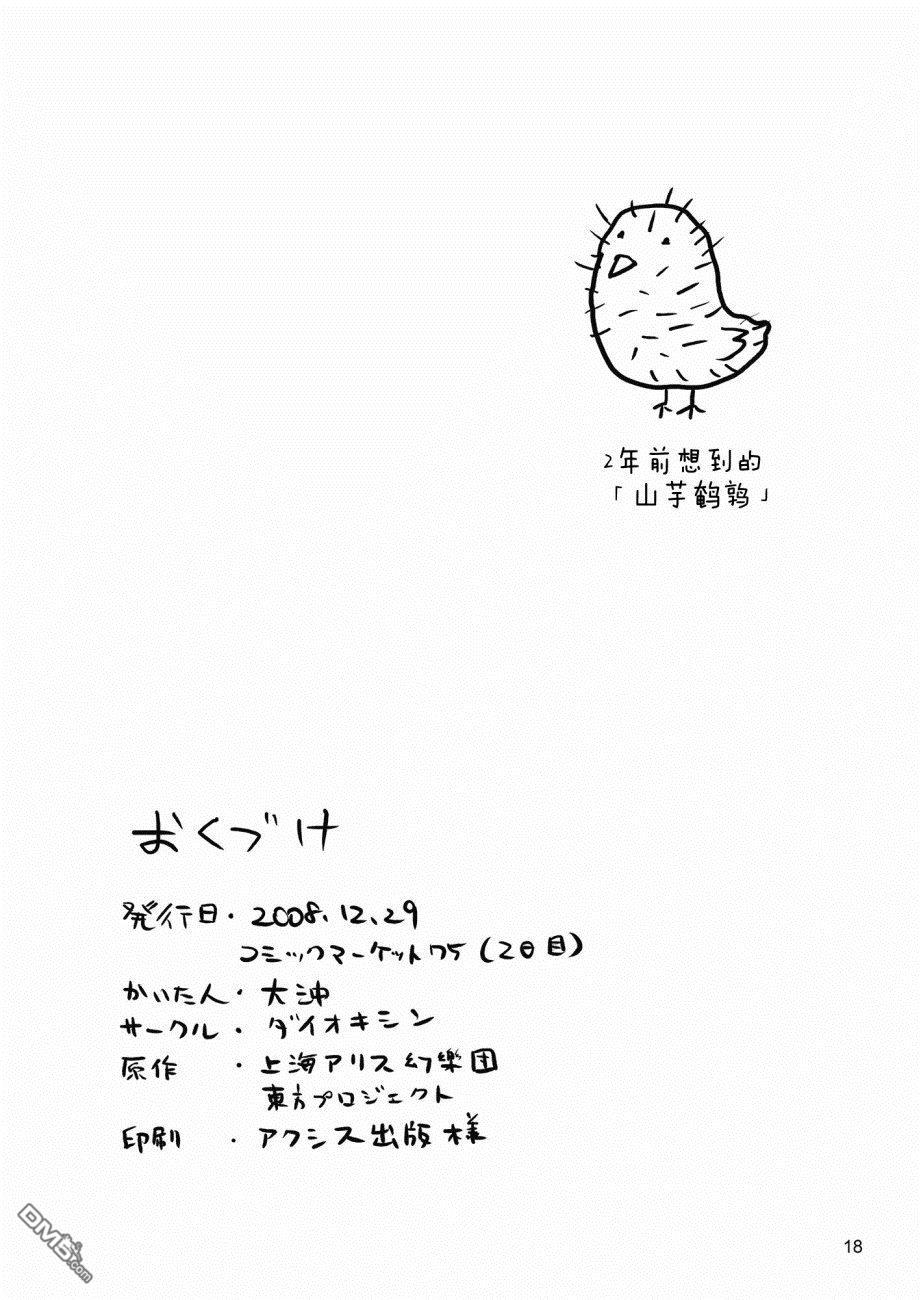 2年前想到的
「山芋鹌鹑」
おくづけ
発行日・2008.12.29
コミックマーケット75(2日目)
かいた人・大沖
サークル・ダイオキシン
原作・上海アリス幻樂団
東方プロジェクト
印刷・アクシス出版様
18
DM5.com